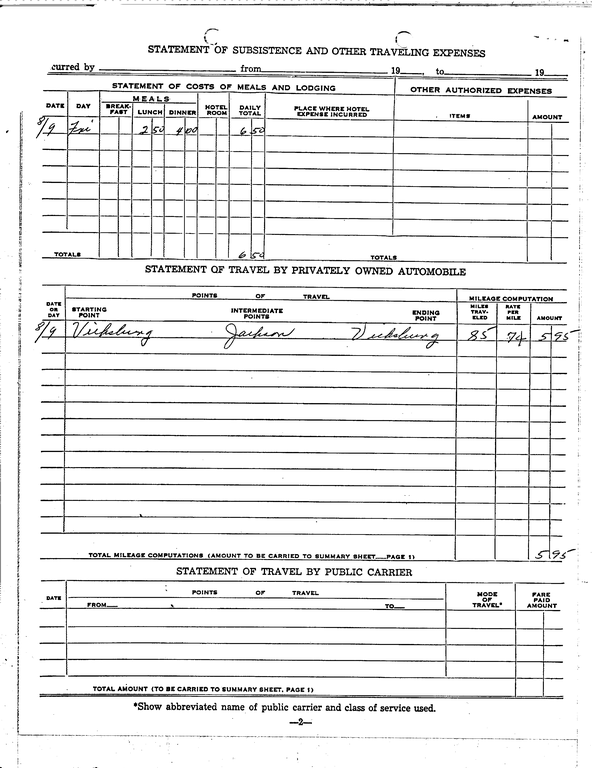 STATEMENT OF SUBSISTENCE AND OTHER TRAVELING EXPENSES
curred by from 19 , to 19
STATEMENT OF COSTS OF MEALS AND LODGING
OTHER AUTHORIZED EXPENSES
DATE DAY MEALS BREAK-FAST LUNCH DINNER HOTEL ROOM DAILY TOTAL PLACE WHERE HOTEL EXPENSE INCURRED ITEMS AMOUNT
8/9 Fri 2 50 4 00 6 50
TOTALS 6 50 TOTALS
STATEMENT OF TRAVEL BY PRIVATELY OWNED AUTOMOBILE
POINTS OF TRAVEL MILEAGE COMPUTATION
DATE OR DAY STARTING POINT INTERMEDIATE POINTS ENDING POINT MILES TRAV-ELED RATE PER MILE AMOUNT
8/9 Vicksburg Jackson Vicksburg 85 7¢ 5 95
TOTAL MILEAGE COMPUTATIONS (AMOUNT TO BE CARRIED TO SUMMARY SHEET....PAGE 1) 5 95
STATEMENT OF TRAVEL BY PUBLIC CARRIER
DATE POINTS OF TRAVEL MODE OF TRAVEL* FARE PAID AMOUNT
FROM TO
TOTAL AMOUNT (TO BE CARRIED TO SUMMARY SHEET, PAGE 1)
*Show abbreviated name of public carrier and class of service used.
—2—